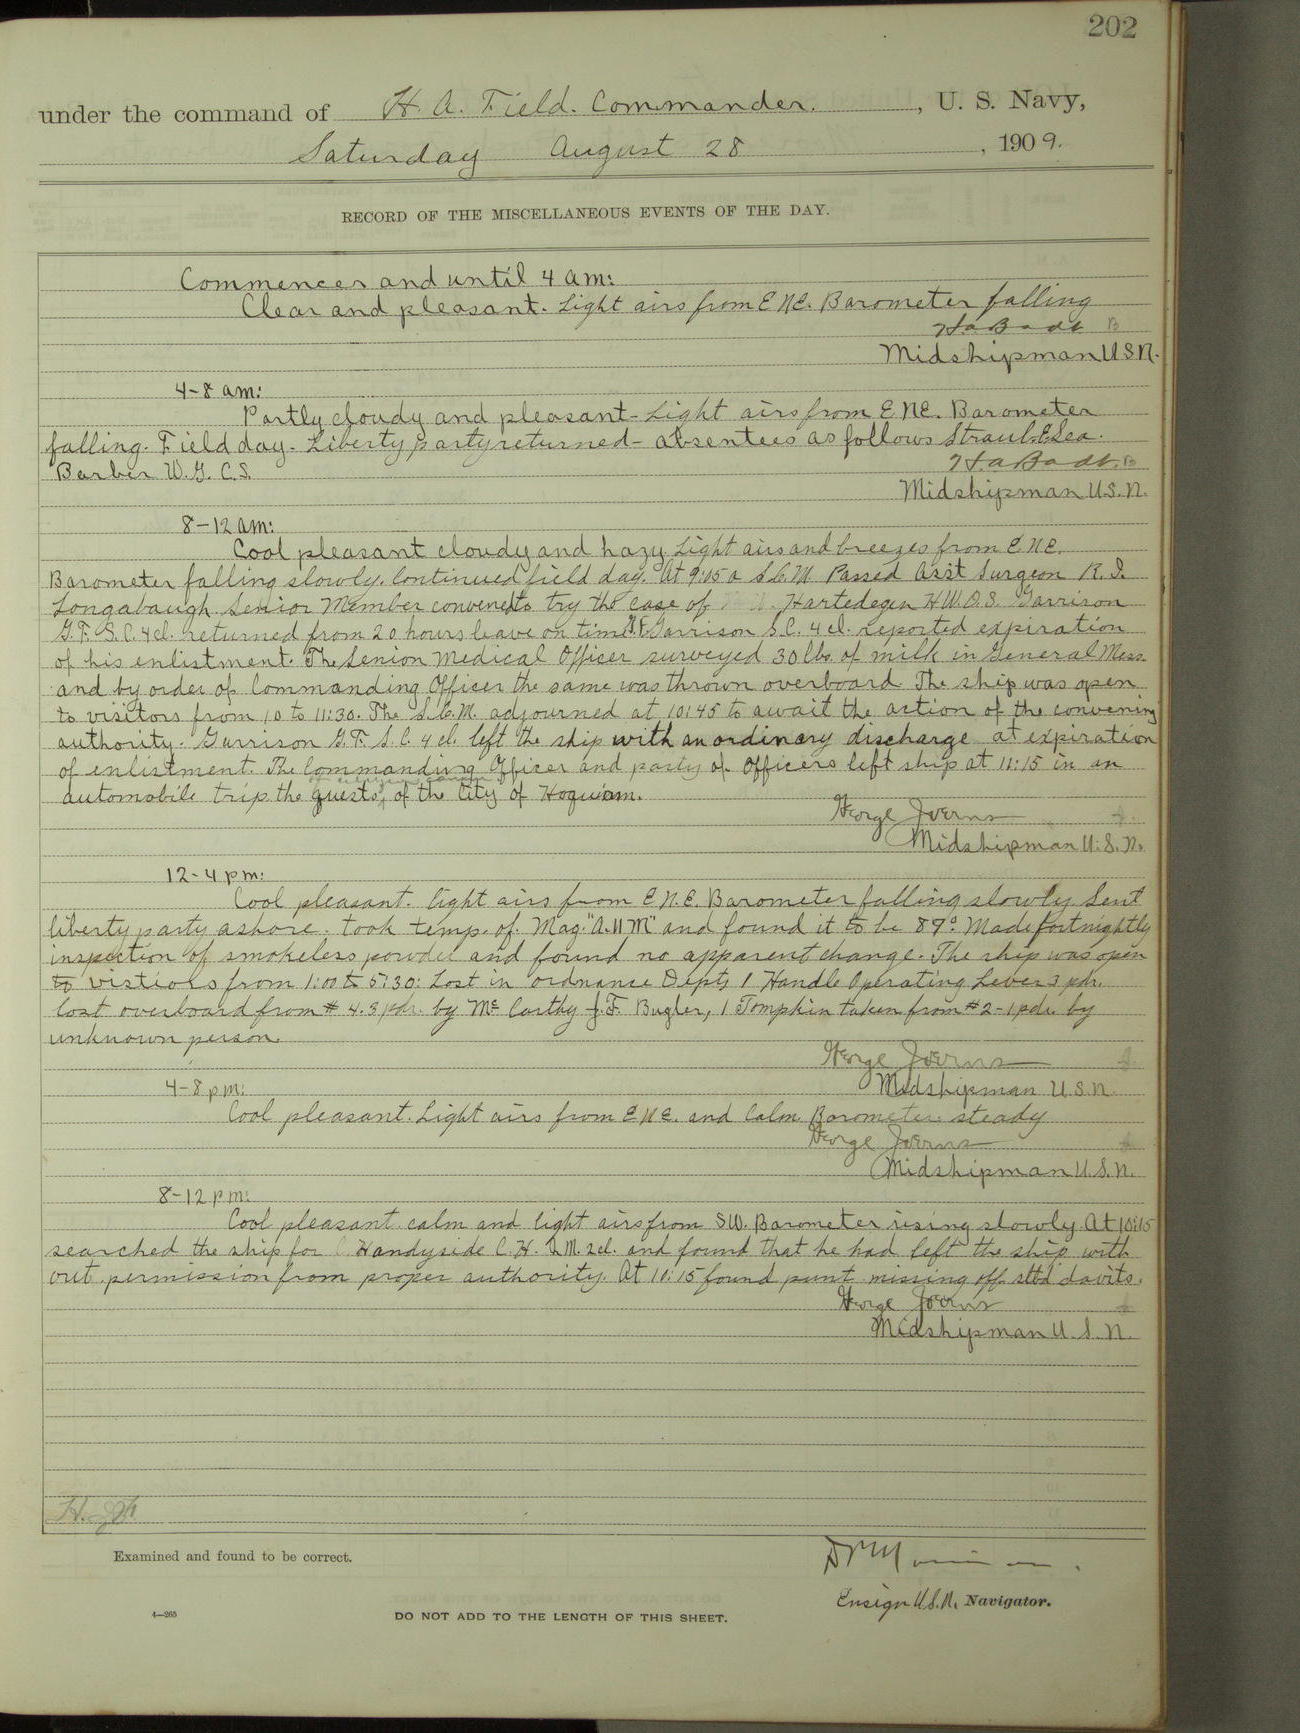 202
under the command of H. A. Field. Commander. , U. S. Navy,
Saturday August 28 , 1909.
RECORD OF THE MISCELLANEOUS EVENTS OF THE DAY.
Commences and until 4 am:
Clear and pleasant. Light airs from E NE. Barometer falling
H. a Badt B
Midshipman U S N.
4-8 am:
Partly cloudy and pleasant - Light airs from E NE. Barometer
falling. Field day. Liberty party returned - absentees as follows Straub. E. Sea.
Barber W. G. C. S.
H. a Badt. B
Midshipman U. S. N.
8-12 am:
Cool pleasant cloudy and hazy Light airs and breezes from E NE.
Barometer falling slowly. Continued field day. At 9:15 a S. C. M Passed Ass't Surgeon R. I.
Longabaugh Senior Member convened to try the case of Hartedegen H W. O. S. Garrison
G. F. S. C. 4 cl. returned from 20 hours leave on time G. F. Garrison S C. 4 cl. reported expiration
of his enlistment. The Senior Medical Officer surveyed 30 lbs. of milk in General Mess
and by order of Commanding Officer the same was thrown overboard The ship was open
to visitors from 10 to 11:30. The S. C. M. adjourned at 10:45 to await the action of the convening
authority. Garrison G. F. S. C. 4 cl. left the ship with an ordinary discharge at expiration
of enlistment. The Commanding Officer and party of Officers left ship at 11:15 in an
automobile trip the guests of the City of Hoquiam.
George Joerns J.
Midshipman U. S. N.
12-4 pm:
Cool pleasant. light airs from E N. E. Barometer falling slowly Sent
liberty party ashore. took temp. of Mag. "A. 11 M" and found it to be 87° Made fortnightly
inspection of smokeless powder and found no apparent change. The ship was open
to vistiors from 1:00 to 5:30: Lost in ordnance Dept, 1 Handle Operating Lever 3 pdr.
lost overboard from # 4. 3 pdr. by Mc Carthy J. F. Bugler, 1 Tompkin taken from #2-1 pdr. by
unknown person.
George Joerns J.
4-8 pm: Midshipman U. S. N.
Cool pleasant. Light airs from E N E. and Calm Barometer steady
George Joerns J
Midshipman U. S. N.
8-12 pm:
Cool pleasant calm and light airs from SW. Barometer rising slowly. At 10:15
searched the ship for Handyside C. H. 2 cl. and found that he had left the ship with
out permission from proper authority. At 10:15 found punt missing off stbd davits.
George Joerns J
Midshipman U. S. N.
Examined and found to be correct.
Ensign U. S. N. Navigator.
4—265
DO NOT ADD TO THE LENGTH OF THIS SHEET.